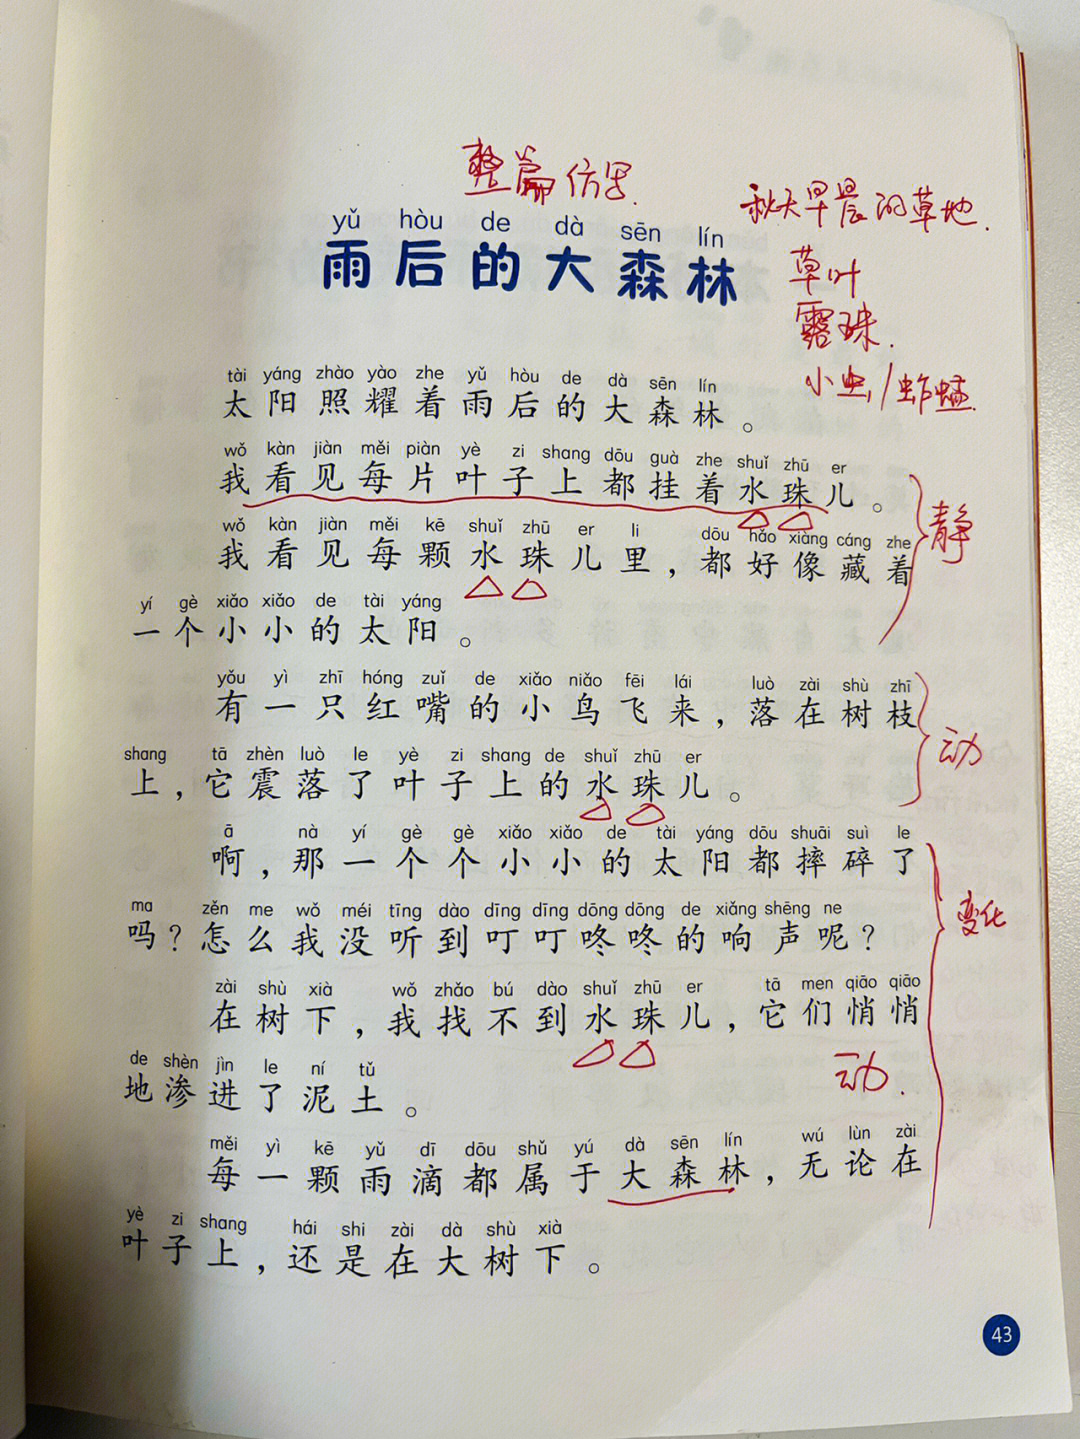 整篇仿写.
秋天早晨的草地.
草叶
露珠.
小虫/蚱蜢.
yǔ hòu de dà sēn lín
雨后的大森林
tài yáng zhào yào zhe yǔ hòu de dà sēn lín
太阳照耀着雨后的大森林。
wǒ kàn jiàn měi piàn yè zi shang dōu guà zhe shuǐ zhū er
我看见每片叶子上都挂着水珠儿。
静
wǒ kàn jiàn měi kē shuǐ zhū er li dōu hǎo xiàng cáng zhe
我看见每颗水珠儿里，都好像藏着
yí gè xiǎo xiǎo de tài yáng
一个小小的太阳。
yǒu yì zhī hóng zuǐ de xiǎo niǎo fēi lái luò zài shù zhī
有一只红嘴的小鸟飞来，落在树枝
动
shang tā zhèn luò le yè zi shang de shuǐ zhū er
上，它震落了叶子上的水珠儿。
ā nà yí gè gè xiǎo xiǎo de tài yáng dōu shuāi suì le
啊，那一个个小小的太阳都摔碎了
变化
ma zěn me wǒ méi tīng dào dīng dīng dōng dōng de xiǎng shēng ne
吗？怎么我没听到叮叮咚咚的响声呢？
zài shù xià wǒ zhǎo bú dào shuǐ zhū er tā men qiāo qiāo
在树下，我找不到水珠儿，它们悄悄
动.
de shèn jìn le ní tǔ
地渗进了泥土。
měi yì kē yǔ dī dōu shǔ yú dà sēn lín wú lùn zài
每一颗雨滴都属于大森林，无论在
yè zi shang hái shi zài dà shù xià
叶子上，还是在大树下。
43